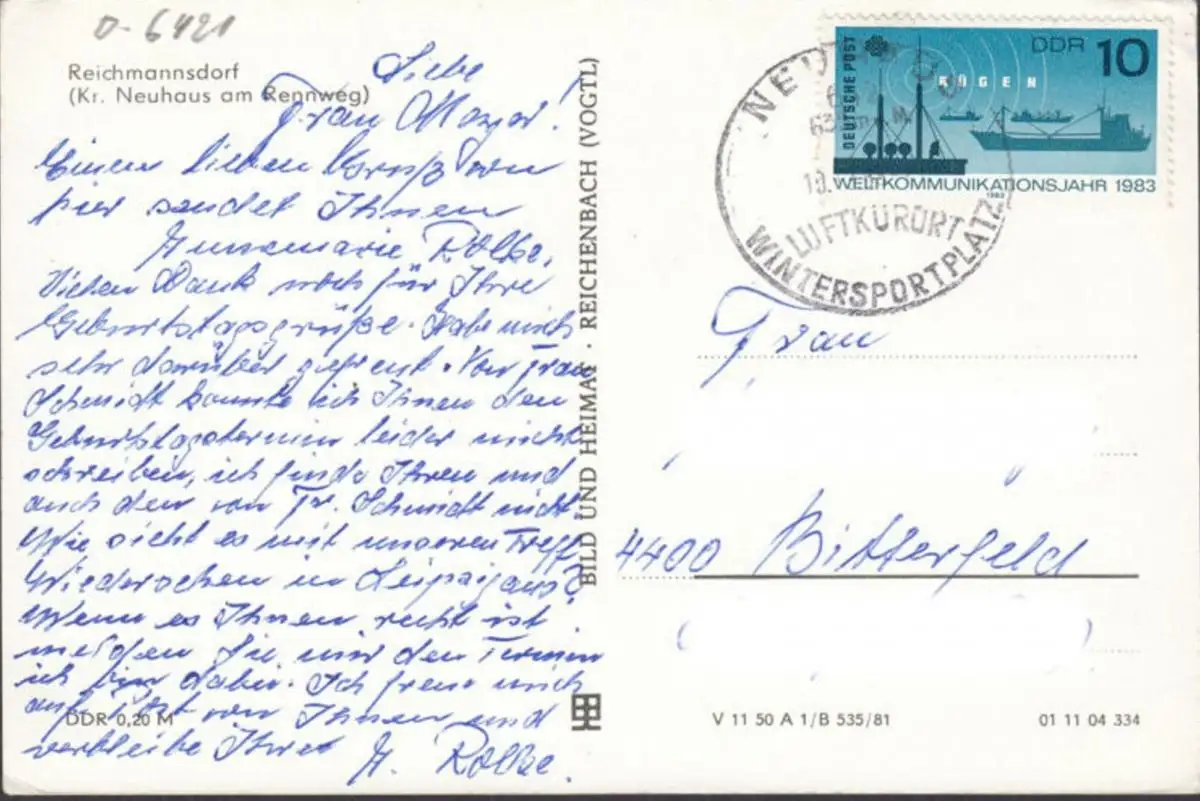 D-6421
Reichmannsdorf
(Kr. Neuhaus am Rennweg)
Liebe
Frau
Einen lieben Gruß von
hier sendet Ihnen
Annemarie Rolke.
Vielen Dank noch für Ihre
Geburtstagsgrüße. Habe mich
sehr darüber gefreut. Von Frau
Schmidt konnte ich Ihnen den
Geburtstagstermin leider nicht
schreiben, ich finde Ihren und
auch den von Fr. Schmidt nicht.
Wie sieht es mit unseren Treff
Wiedersehen in Leipzig aus?
Wenn es Ihnen recht ist
melden Sie mir den Termin
ich bin dabei. Ich freue mich
auf Post von Ihnen und
verbleibe Ihre
A. Rolke.
DDR 0,20 M
BILD UND HEIMAT · REICHENBACH (VOGTL)
DEUTSCHE POST
DDR 10
RÜGEN
WELTKOMMUNIKATIONSJAHR 1983
1983
LUFTKURORT
WINTERSPORTPLATZ
Frau
4400 Bitterfeld
V 11 50 A 1/B 535/81
01 11 04 334